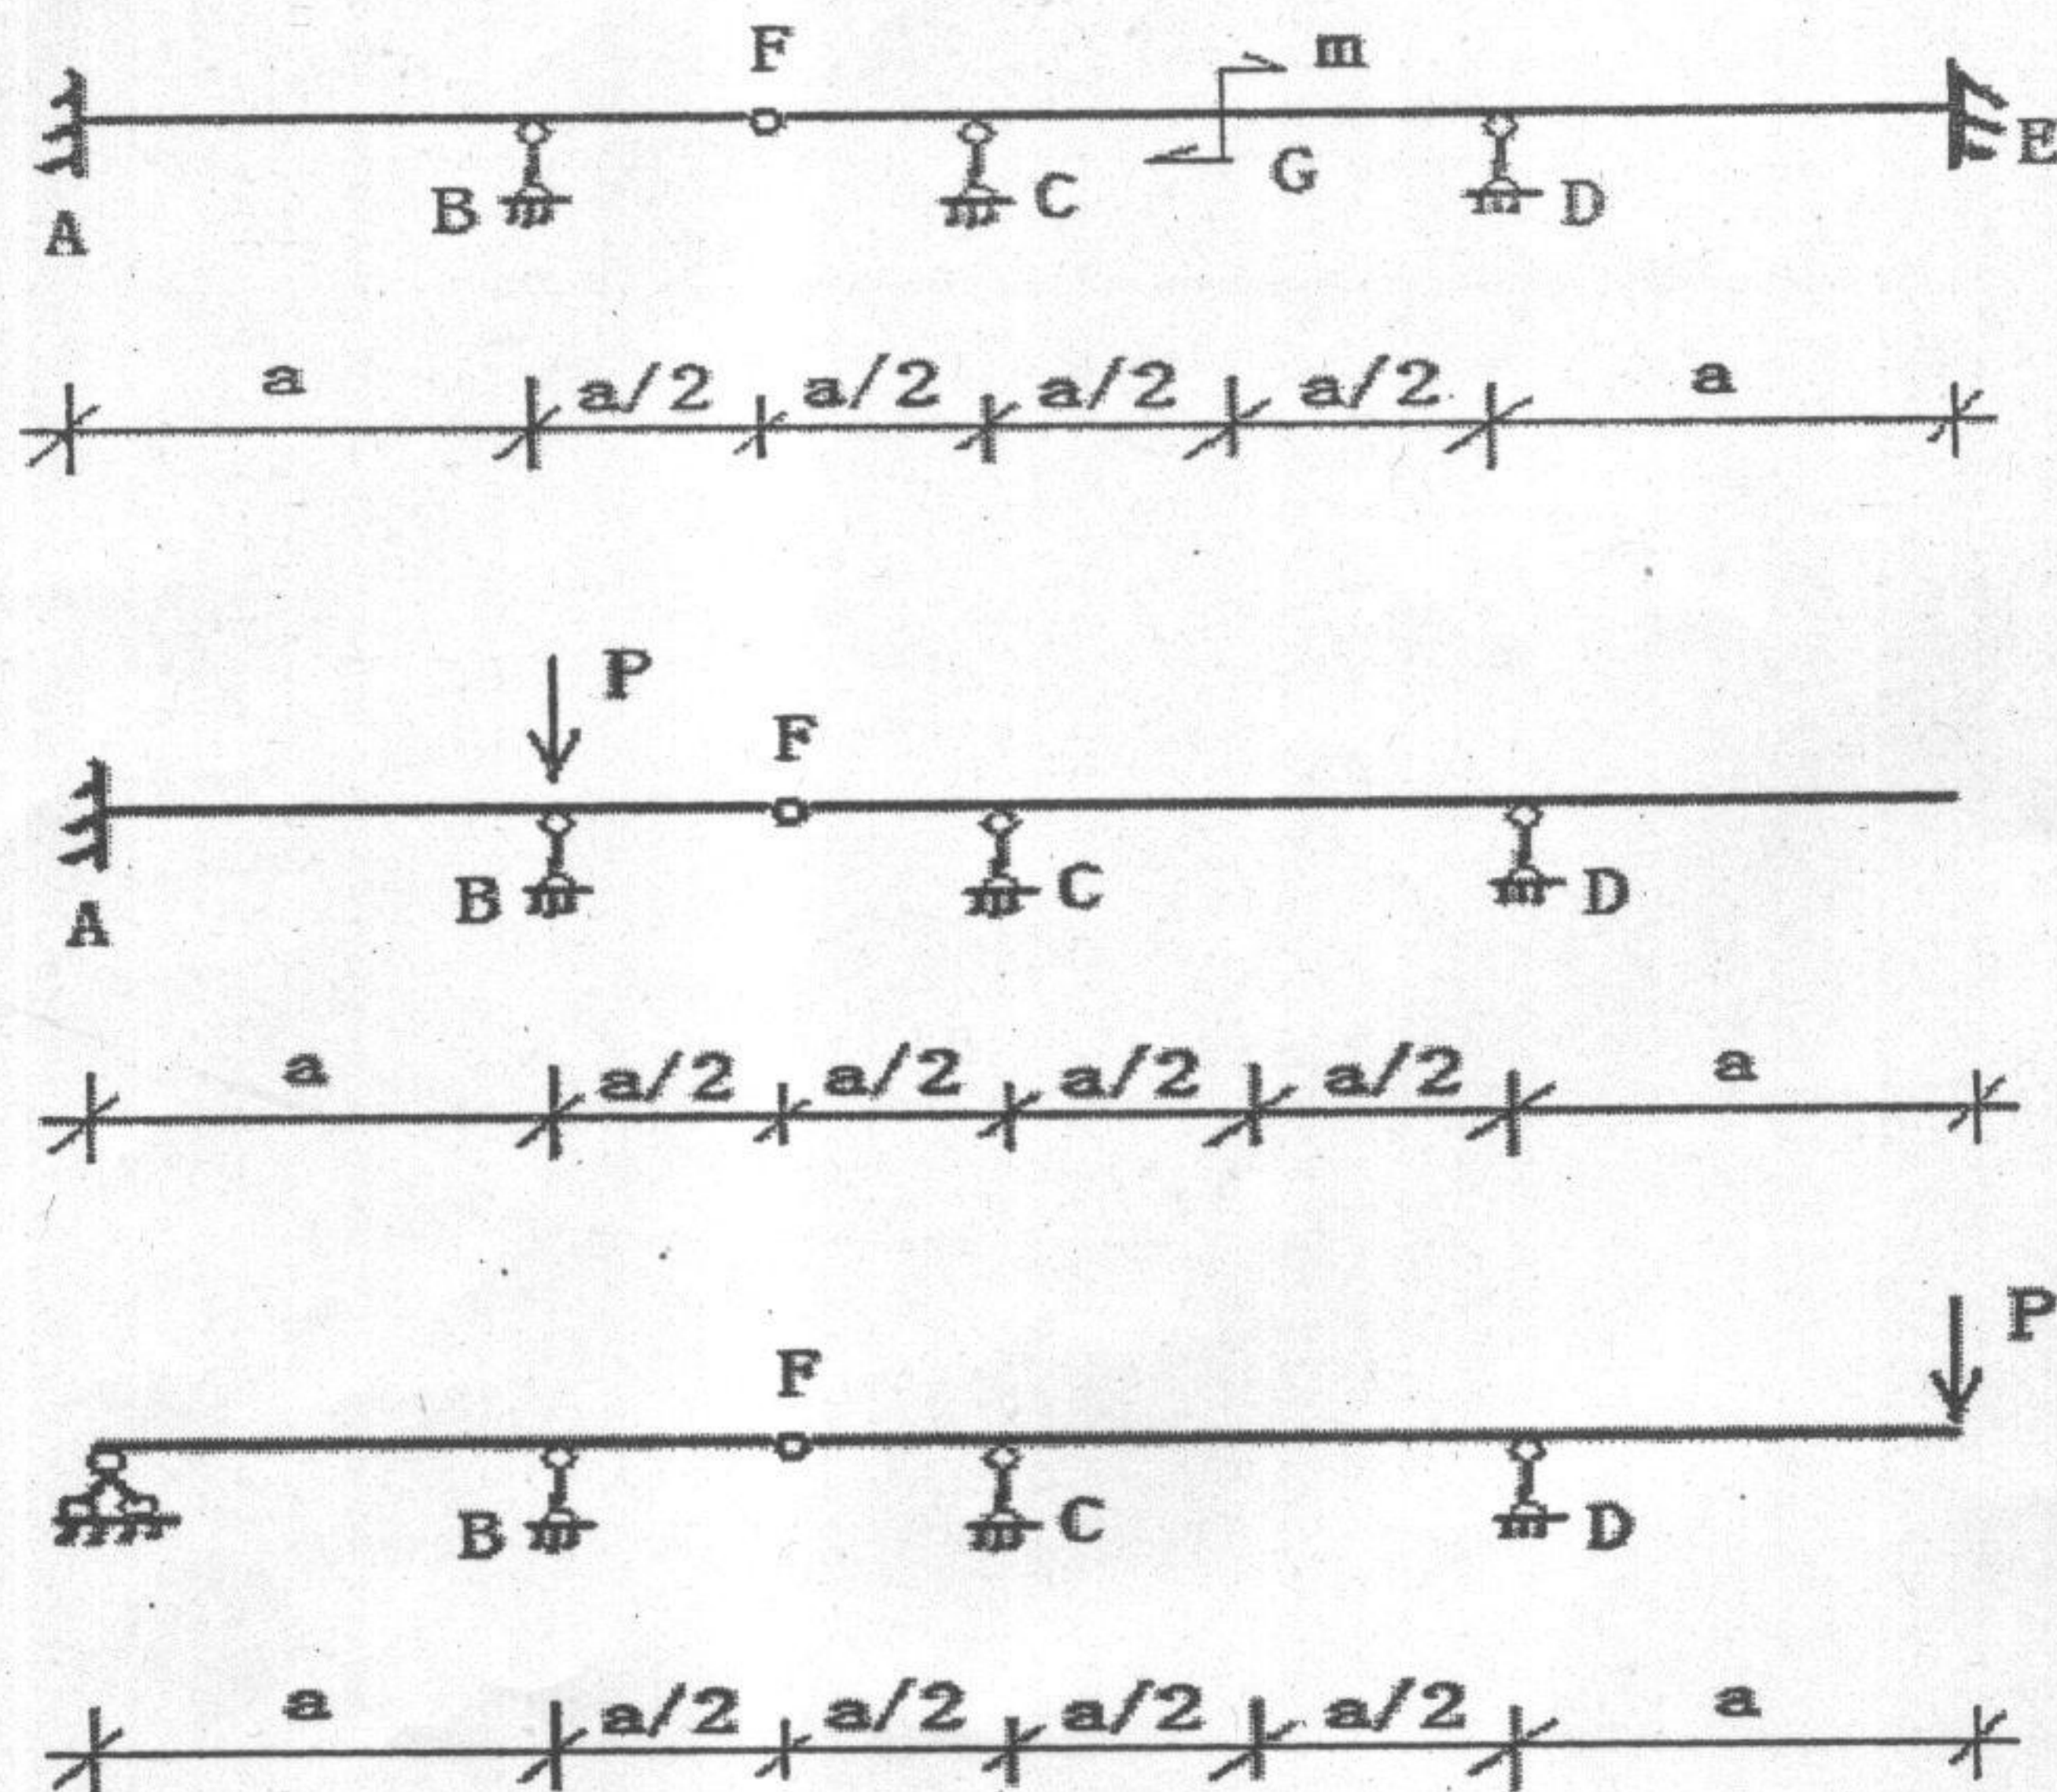 F m
B C G D E
A
a a/2 a/2 a/2 a/2 a
P
F
B C D
A
a a/2 a/2 a/2 a/2 a
P
F
B C D
a a/2 a/2 a/2 a/2 a